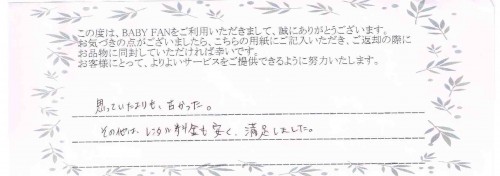 この度は、BABY FANをご利用いただきまして、誠にありがとうございます。
お気づきの点がございましたら、こちらの用紙にご記入いただき、ご返却の際に
お品物に同封していただければ幸いです。
お客様にとって、よりよいサービスをご提供できるように努力いたします。
思っていたよりも、古かった。
その他は、レンタル料金も安く、満足しました。